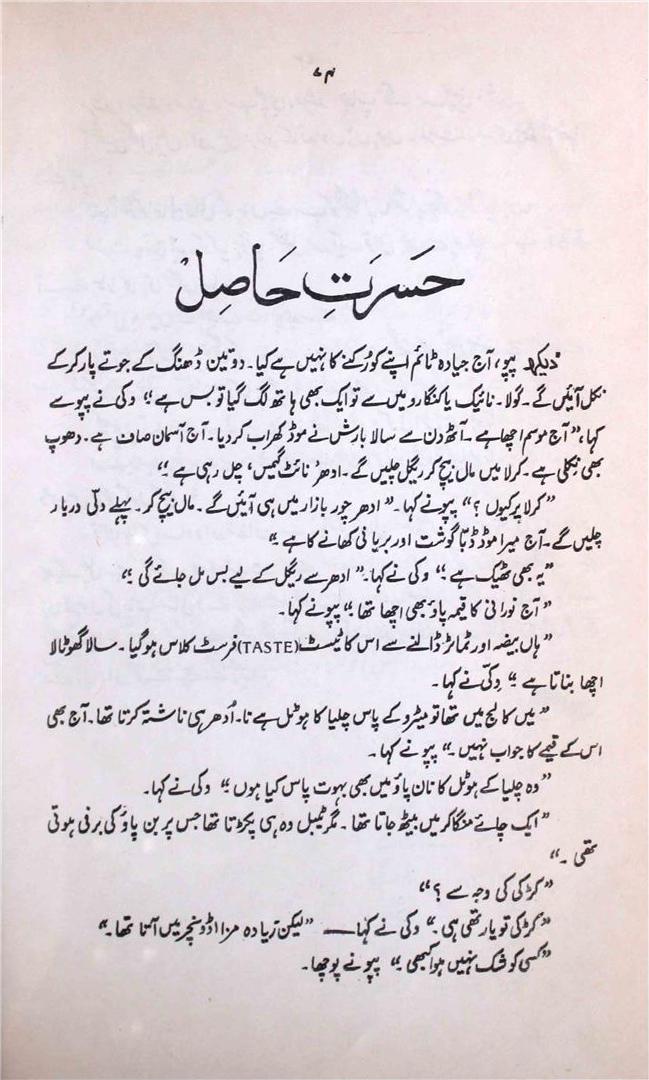 ۷۴
حَسرَتِ حَاصِلْ
”دیکھ پپو، آج جیادہ ٹائم اپنے کو رُکنے کا نہیں ہے کیا۔ دو تین ڈھنگ کے جوتے پار کر کے
نکل آئیں گے۔ لولا۔ نائیک یا کنگارو میں سے تو ایک بھی ہاتھ لگ گیا تو بس ہے“ وکی نے پپو سے
کہا، ”آج موسم اچھا ہے۔ آٹھ دن سے سالا بارش نے موڈ کھراب کر دیا۔ آج آسمان صاف ہے۔ دھوپ
بھی نکلی ہے۔ کرلا میں مال بیچ کر ریگل چلیں گے۔ ادھر ’نائٹ گیمس‘ چل رہی ہے“
”کرلا پر کیوں؟“ پپو نے کہا۔ ”ادھر چور بازار میں ہی آئیں گے۔ مال بیچ کر۔ پہلے دلّی دربار
چلیں گے۔ آج میرا موڈ ڈبّا گوشت اور بریانی کھانے کا ہے“
”یہ بھی ٹھیک ہے“ وکی نے کہا۔ ”ادھر سے ریگل کے لیے بس مل جائے گی“
”آج نورانی کا قیمہ پاؤ بھی اچھا تھا“ پپو نے کہا۔
”ہاں بیضہ اور ٹماٹر ڈالنے سے اس کا ٹیسٹ (TASTE) فرسٹ کلاس ہو گیا۔ سالا گھوٹالا
اچھا بناتا ہے“ وِکّی نے کہا۔
”میں کالج میں تھا تو میٹرو کے پاس چلیا کا ہوٹل ہے نا۔ اُدھر ہی ناشتہ کرتا تھا۔ آج بھی
اس کے قیمے کا جواب نہیں۔“ پپو نے کہا۔
”وہ چلیا کے ہوٹل کا نان پاؤ میں بھی بہوت پاس کیا ہوں“ وکی نے کہا۔
”ایک چائے منگا کر میں بیٹھ جاتا تھا۔ مگر ٹیبل وہ ہی پکڑتا تھا جس پر بن پاؤ کی برفی ہوتی
تھی۔“
”کڑکی کی وجہ سے؟“
”کڑکی تو یار تھی ہی“ وکی نے کہا — ”لیکن زیادہ مزا اڈونچر میں آتا تھا۔“
”کسی کو شک نہیں ہوا کبھی“ پپو نے پوچھا۔